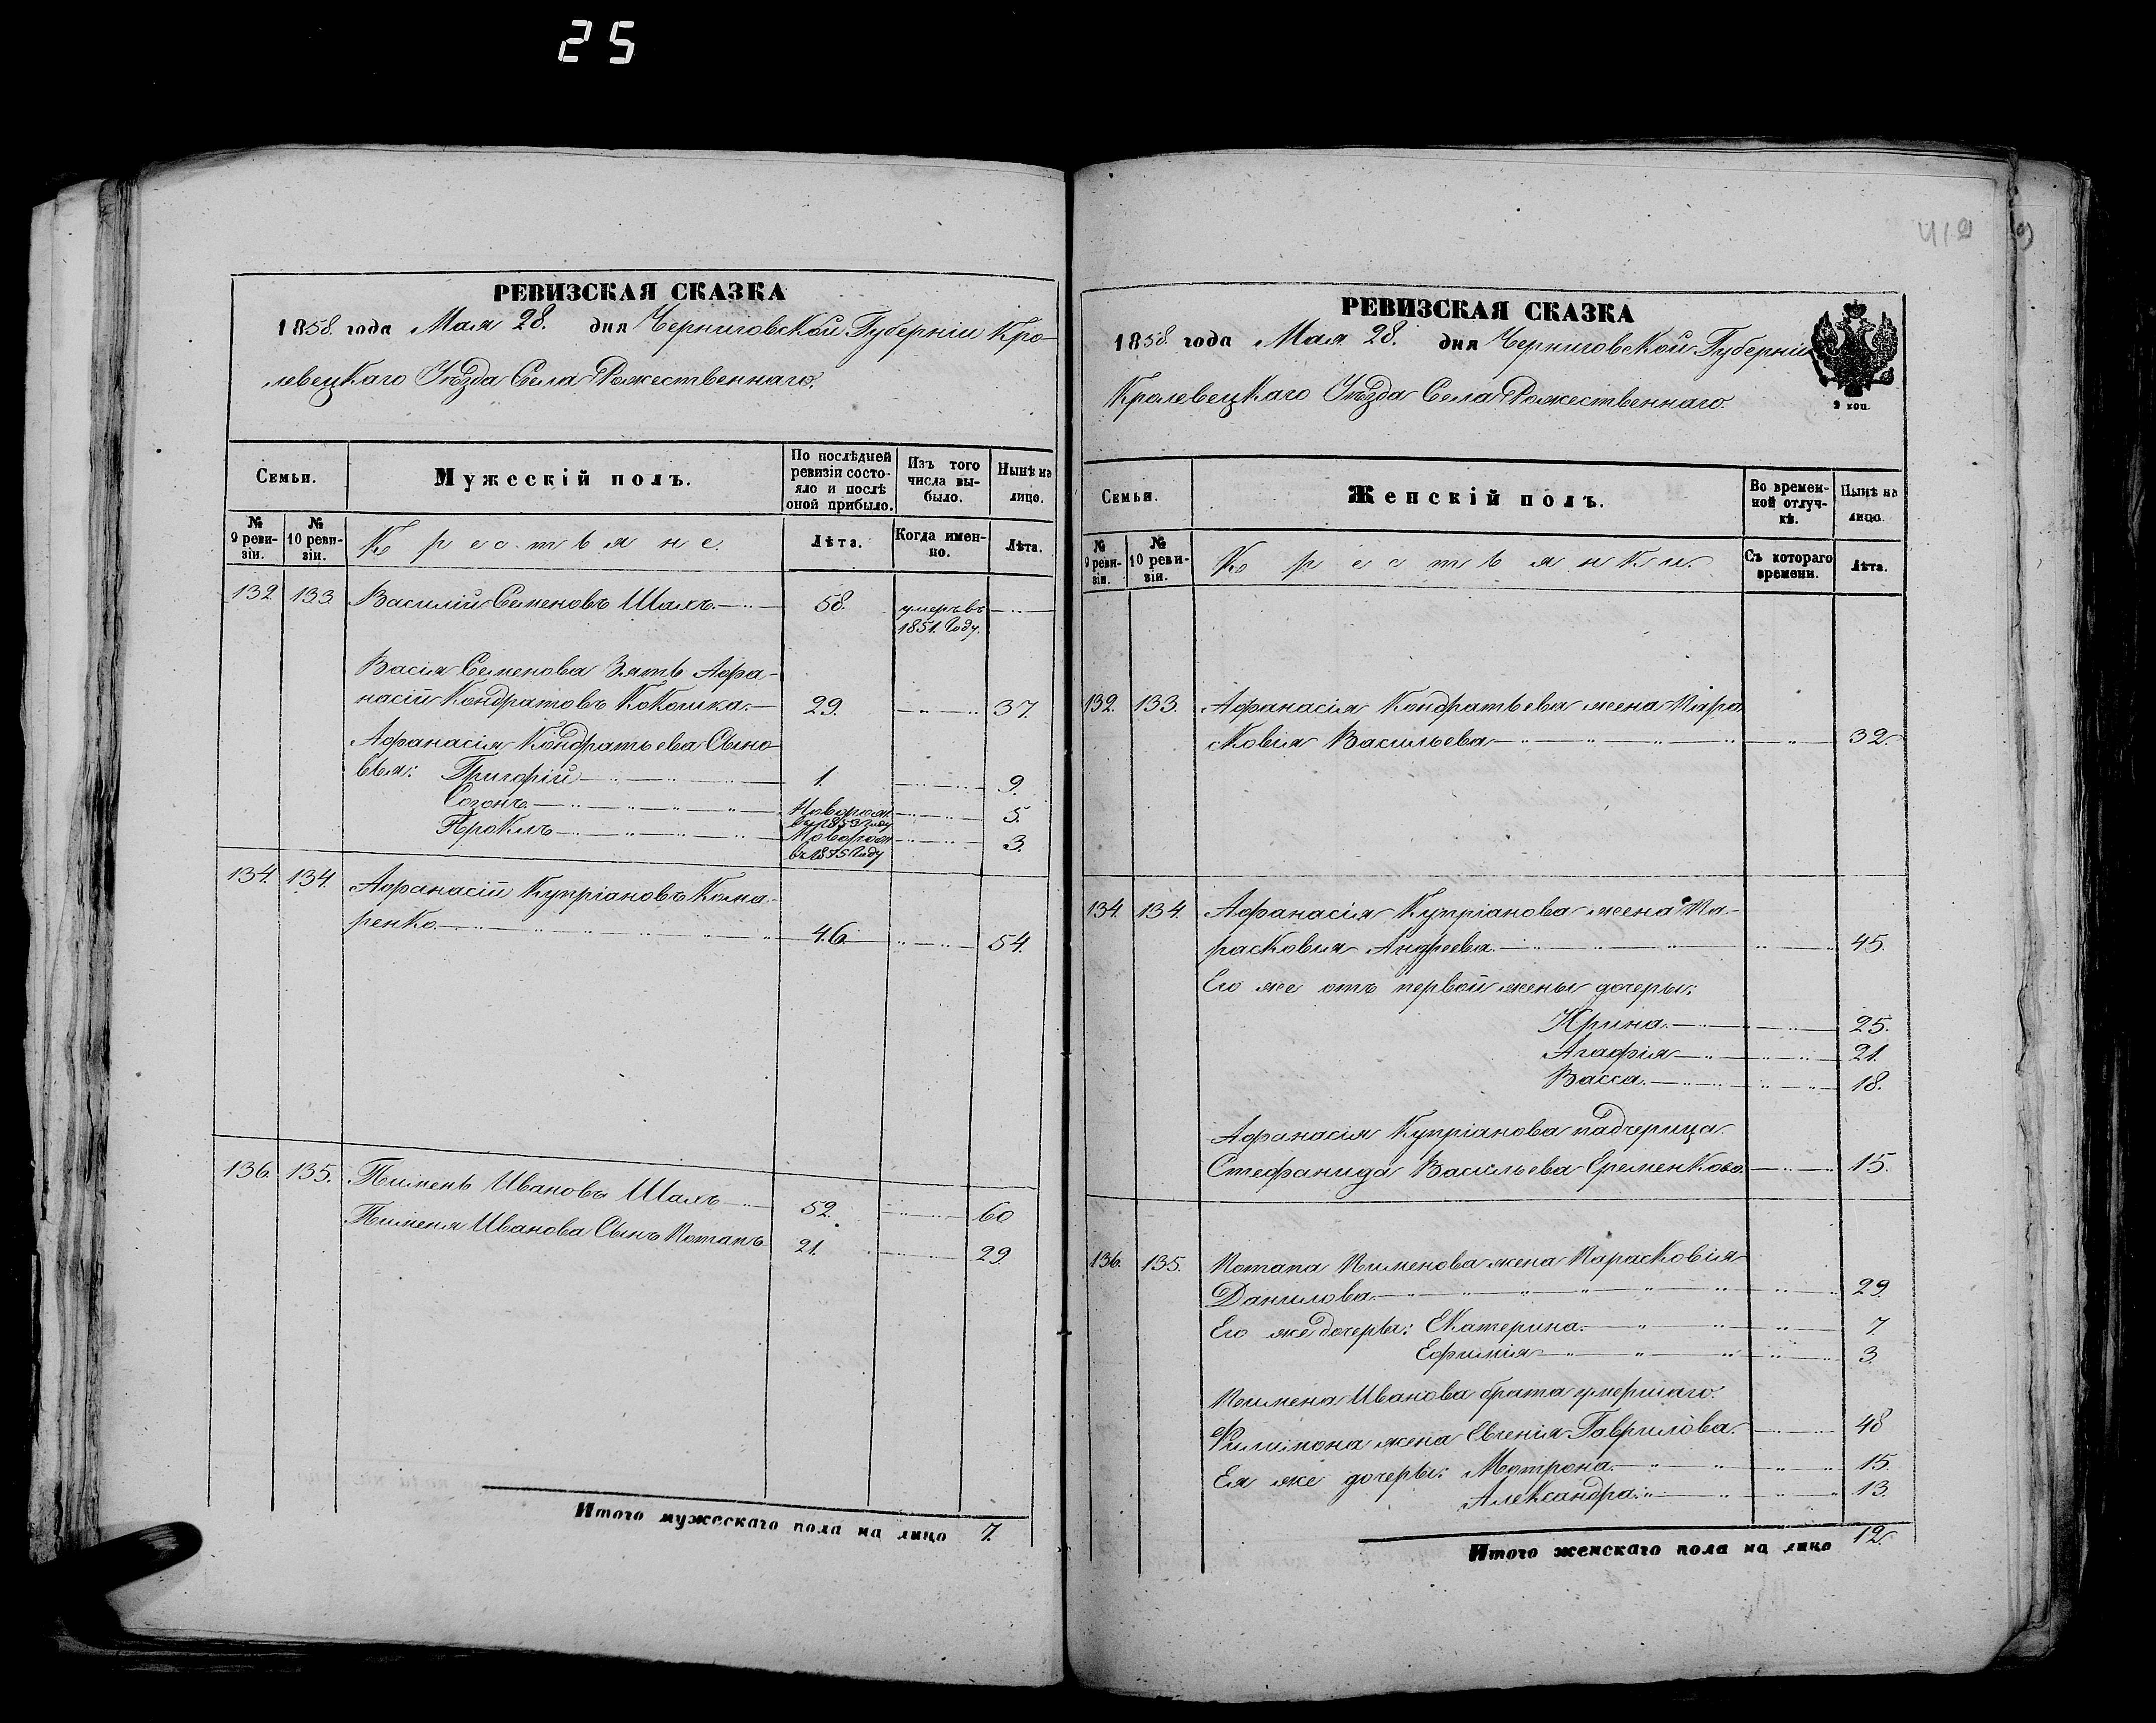 25
412
РЕВИЗСКАЯ СКАЗКА
1858. года Мая 28. дня Черниговской Губерніи Кро-
левецкаго Уѣзда Села Рожественнаго.
Семьи.
Мужескій полъ.
По послѣдней ревизіи состо-
яло и послѣ оной прибыло.
Изъ того числа вы-
было.
Нынѣ на лицо.
№ 9 реви-
зіи.
№ 10 реви-
зіи.
Крестьяне.
Лѣта.
Когда имен-
но.
Лѣта.
132 133. Василій Семеновъ Шахъ. 58. умеръ въ
1851. Году.
Васія Семенова Зять Афа-
насій Кондратовъ Кокошка. 29. 37.
Афанасія Кондратьева Сыно-
вья: Григорій 1. 9.
Созонъ. Новорож. 5.
въ 1853 Году
Проклъ Новорож 3.
въ 1875 Году
134. 134. Афанасій Купріановъ Кома-
ренко. 46. 54.
136. 135. Пименъ Ивановъ Шахъ 52. 60
Пименя Иванова Сынъ Потапъ 21. 29.
Итого мужескаго пола на лицо 7.
РЕВИЗСКАЯ СКАЗКА
1858. года Мая 28. дня Черниговской Губерніи
Кролевецкаго Уѣзда Села Рожественнаго.
2 коп.
Семьи.
Женскій полъ.
Во времен-
ной отлуч-
кѣ.
Нынѣ на лицо.
№ 9 реви-
зіи.
№ 10 реви-
зіи.
Крестьянки.
Съ котораго времени.
Лѣта.
132. 133. Афанасія Кондратьева жена Пара
сковія Васильева 32.
134. 134. Афанасія Купріанова жена Па-
расковія Андреева 45.
Его же отъ первой жены дочеры:
Ирина. 25.
Агафія 21.
Васса. 18.
Афанасія Купріанова падчерица
Стефанида Васильева Еременкова. 15.
136. 135. Потапа Пименова жена Парасковія
Данилова. 29.
Его же дочеры: Екатерина. 7.
Ефимія 3.
Пимена Иванова брата умершаго
Филимона жена Евгенія Гаврилова. 48
Ея же дочеры: Мотрона. 15.
Александра: 13.
Итого женскаго пола на лицо 12.